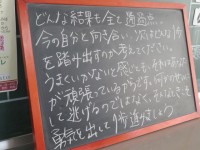 どんな結果も全て通過点。
今の自分と向き合い、次はどんな1歩
を踏み出すのか考えてください。
うまくいかないと感じても、それはあなた
が頑張っているからです。何かの
して逃げるのではなく、そんなときこそ
勇気を出して1歩進みましょう